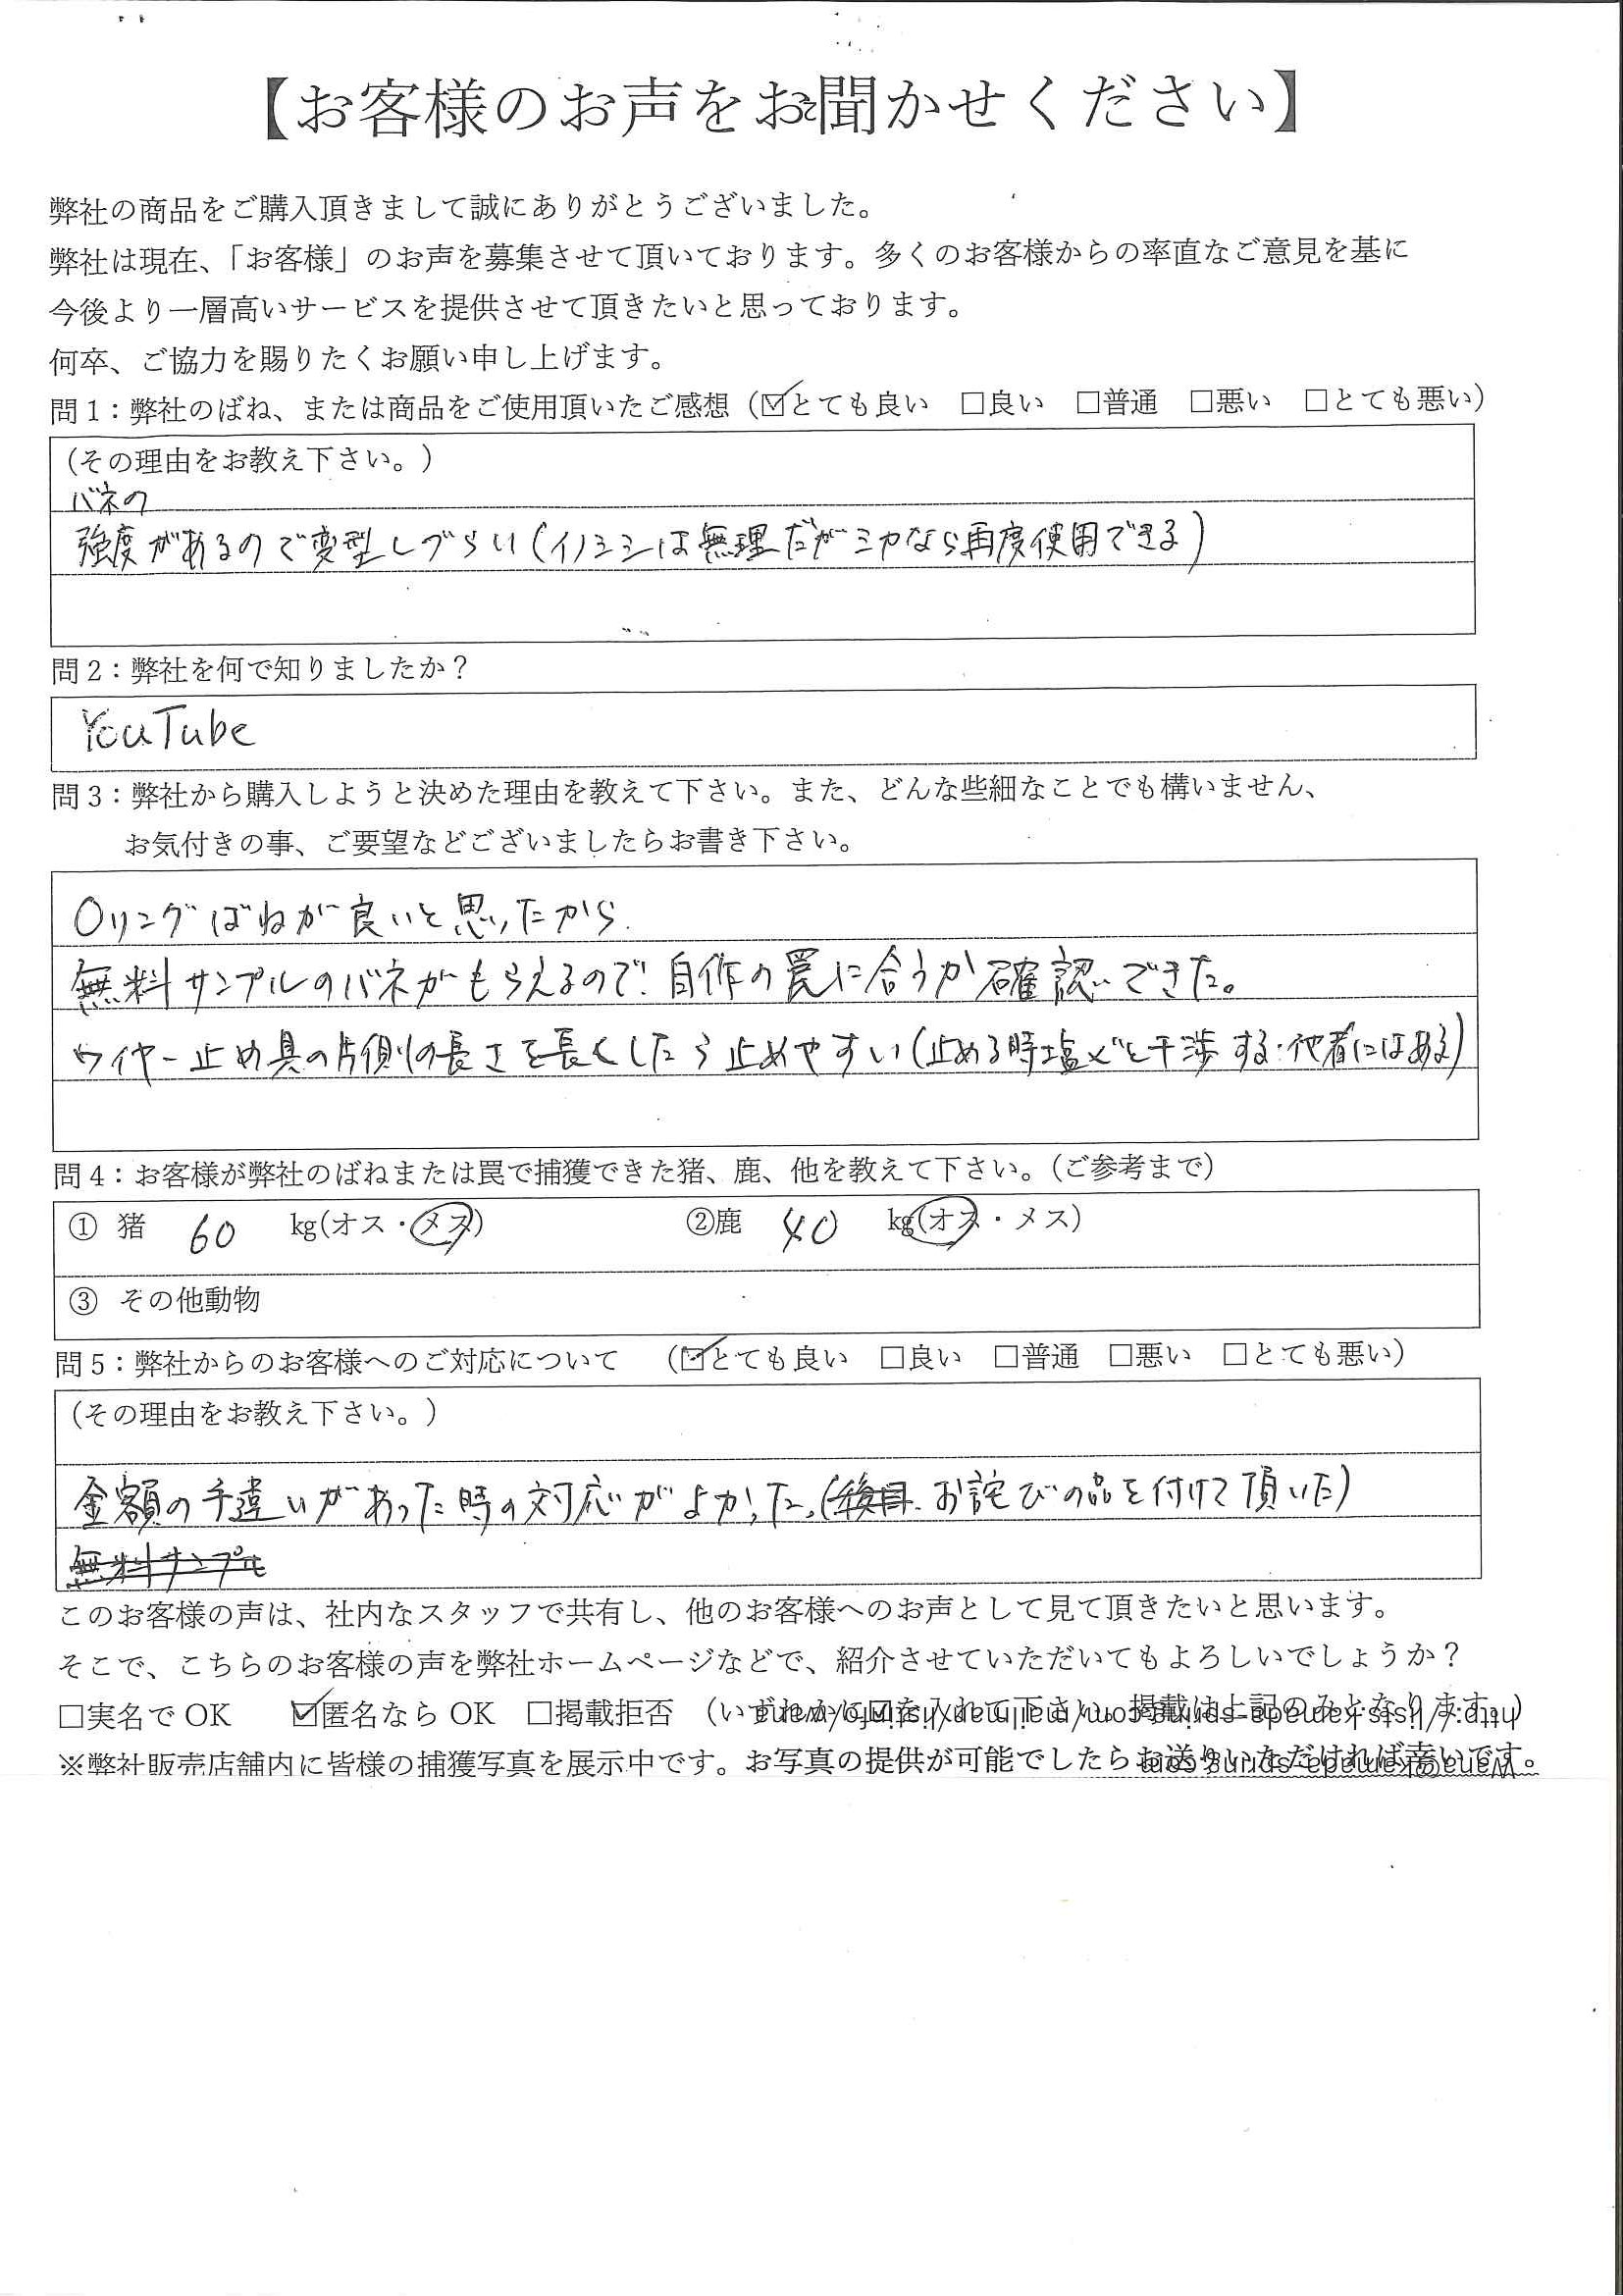 【お客様のお声をお聞かせください】
弊社の商品をご購入頂きまして誠にありがとうございました。
弊社は現在、「お客様」のお声を募集させて頂いております。多くのお客様からの率直なご意見を基に
今後より一層高いサービスを提供させて頂きたいと思っております。
何卒、ご協力を賜りたくお願い申し上げます。
問1：弊社のばね、または商品をご使用頂いたご感想（☑とても良い　□良い　□普通　□悪い　□とても悪い）
（その理由をお教え下さい。）
バネの
強度があるので変型しづらい(イノシシは無理だがシカなら再度使用できる)
問2：弊社を何で知りましたか？
YouTube
問3：弊社から購入しようと決めた理由を教えて下さい。また、どんな些細なことでも構いません、
お気付きの事、ご要望などございましたらお書き下さい。
Oリングばねが良いと思ったから.
無料サンプルのバネがもらえるので、自作の罠に合うか確認できた。
ワイヤー止め具の片側の長さを長くしたら止めやすい(止める時塩ビと干渉する・他者にはある)
問4：お客様が弊社のばねまたは罠で捕獲できた猪、鹿、他を教えて下さい。（ご参考まで）
① 猪 60 kg(オス・メス) ②鹿 40 kg(オス・メス)
③ その他動物
問5：弊社からのお客様へのご対応について　（☑とても良い　□良い　□普通　□悪い　□とても悪い）
（その理由をお教え下さい。）
金額の手違いがあった時の対応がよかった。(後日 お詫びの品を付けて頂いた)
無料サンプル
このお客様の声は、社内なスタッフで共有し、他のお客様へのお声として見て頂きたいと思います。
そこで、こちらのお客様の声を弊社ホームページなどで、紹介させていただいてもよろしいでしょうか？
□実名でOK　☑匿名ならOK　□掲載拒否　（いずれかに☑を入れて下さい。掲載は上記のみとなります。）
※弊社販売店舗内に皆様の捕獲写真を展示中です。お写真の提供が可能でしたらお送りいただければ幸いです。
Wana@kameda-spring.com